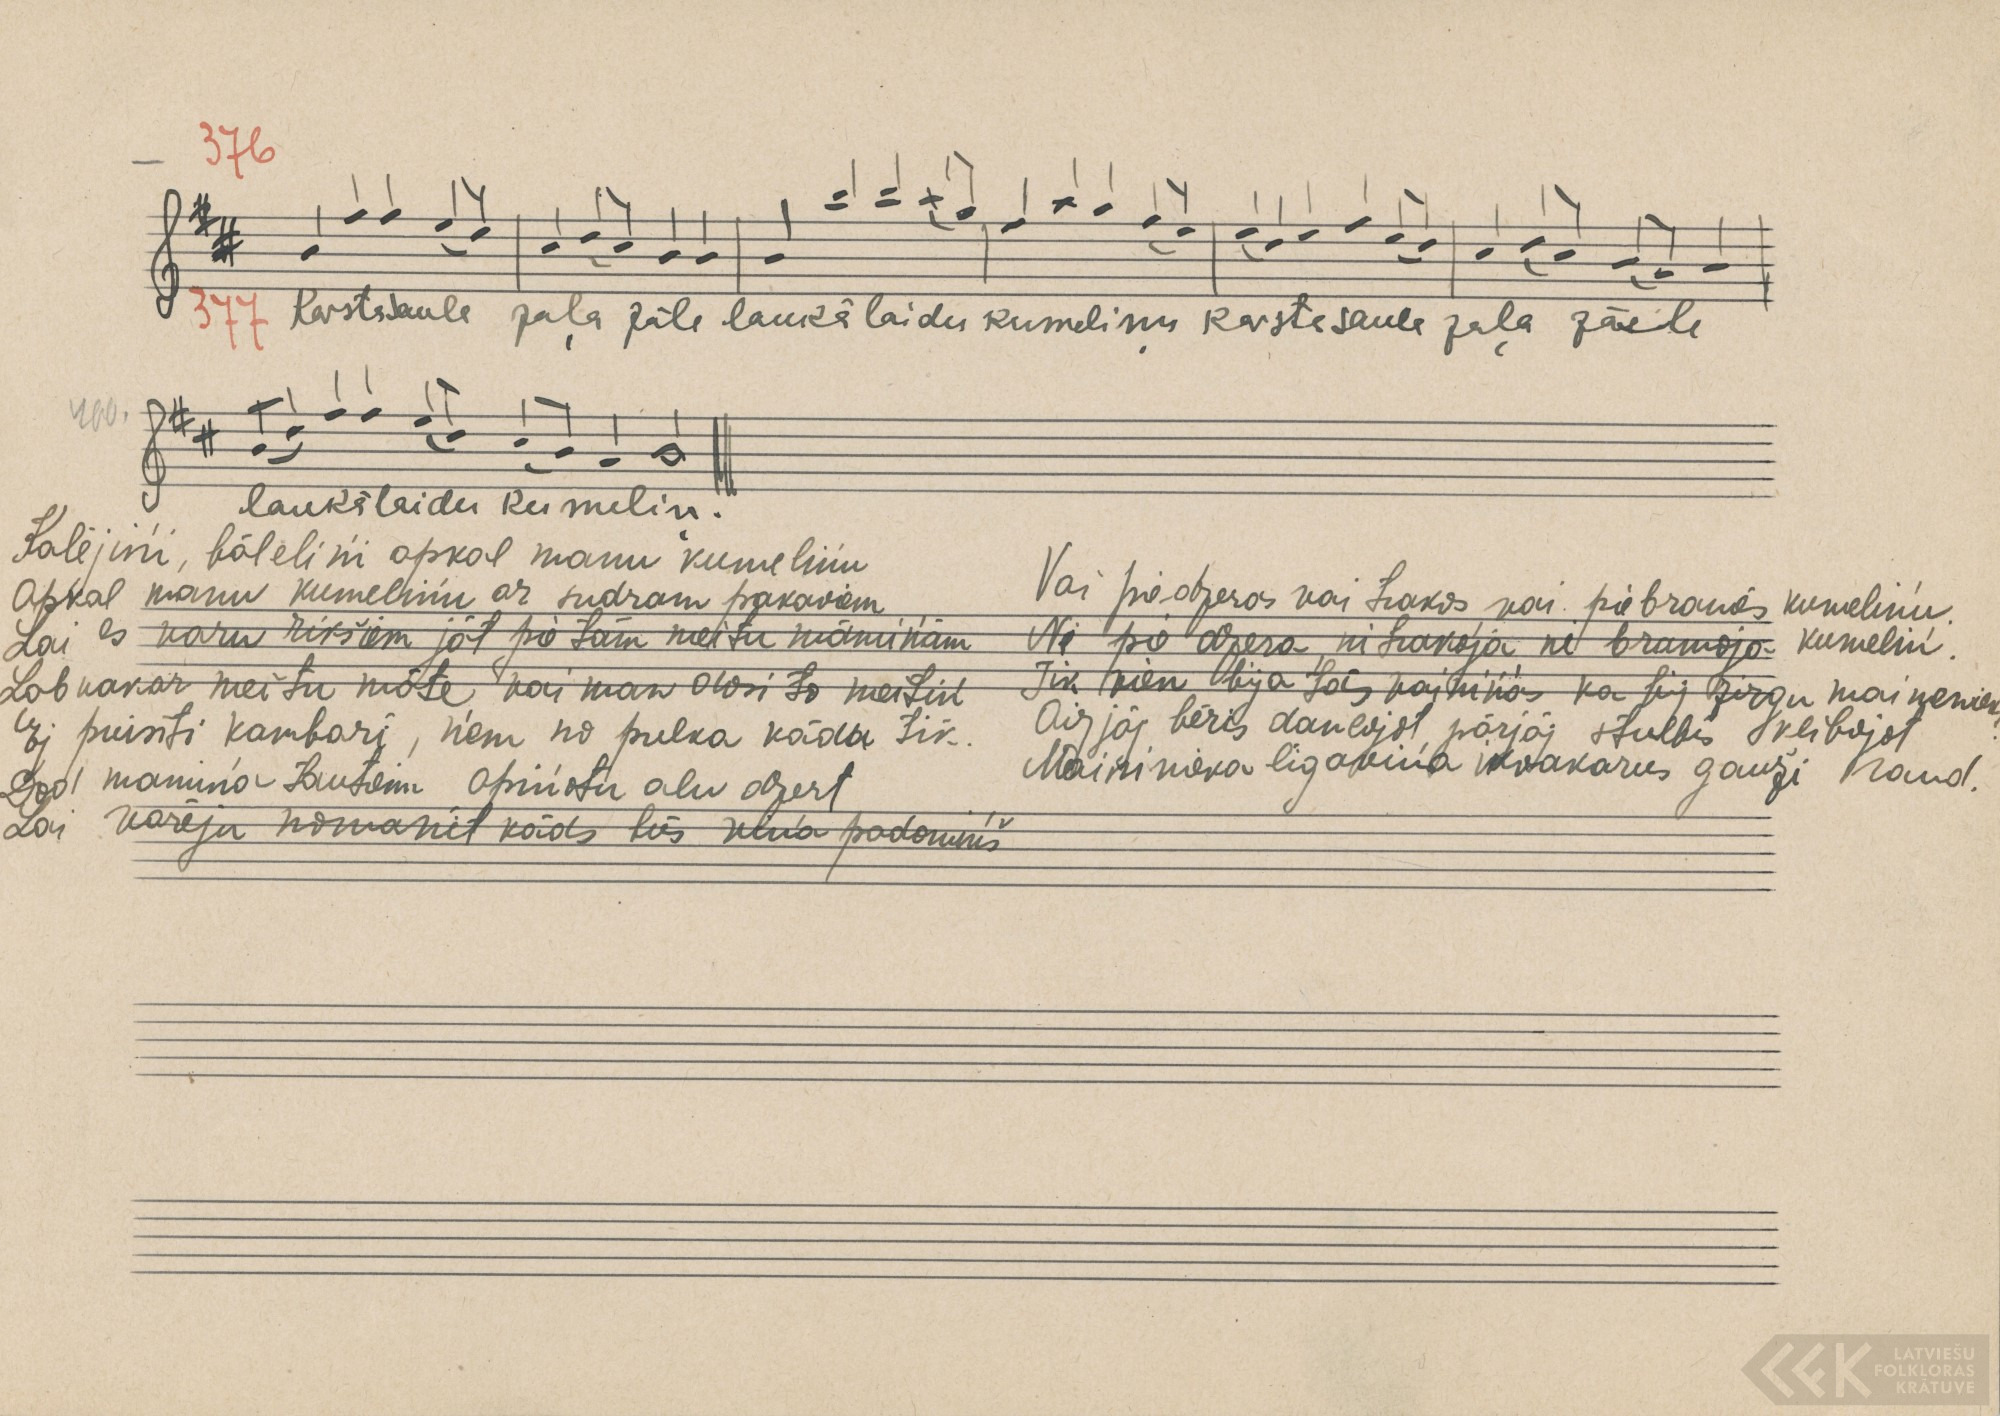 376
377 Karsta saule zaļa zāle laukā laidu kumeliņu karsta saule zaļa zāle
400.
laukā laidu kumeliņ.
Kalējiņi, bāleliņi apkal manu kumeliņu
Apkal manu kumeliņu ar sudram pakaviem
Lai es varu rikšiem jāt pie tām meitu māmiņām
Lab vakar meitu māte vai man dosi to meitiņ
Ej puisīti kambarī, ņem no pulka kāda tīk.
Dod mamiņa tautām apiņotu alu dzert
Lai varēju nomanīt kāds būs viņa padomiņš
Vai piedzeras vai trakos vai piebrauās kumeliņu.
Ne pie dzera, ni trakoja ne bramoja kumeliņ.
Tik vien bija tās vainiņas ka bij zirgu mainenieks
Aizjāj bēris dancojot pārjāj stulbis klibojot
Maininieka ligaviņa ik vakarus gauži raud.
LATVIEŠU
FOLKLORAS
KRĀTUVE